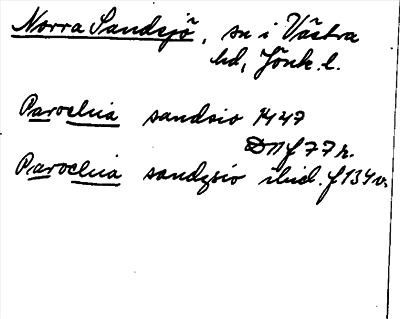 Norra Sandsjö, sn i Västra
hd, Jönk. l.
Parochia sandsio 1447
D11 f 77 r.
Parochia sandzsio ibid. f 134 v.